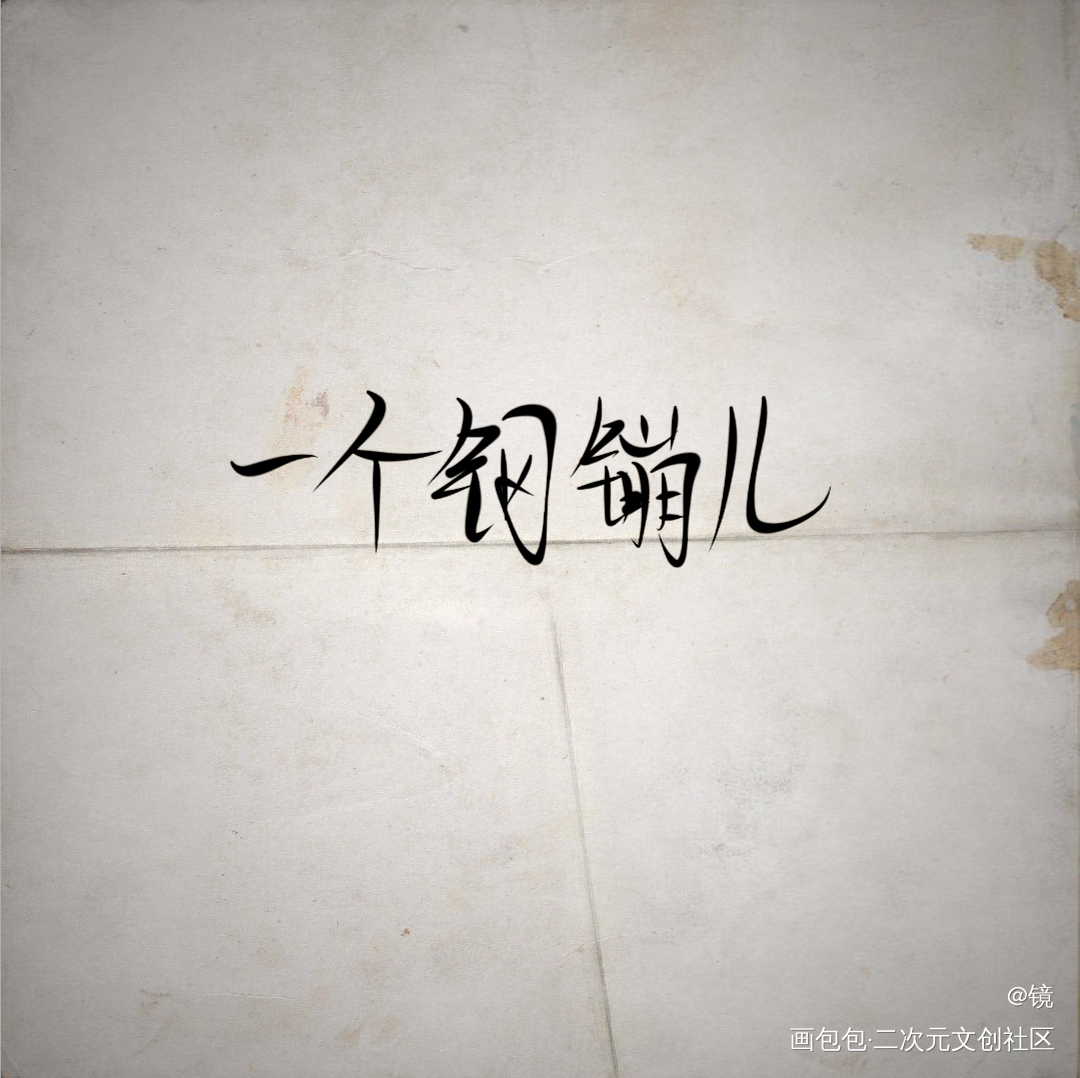 一个钢镚儿
@镜
画包包·二次元文创社区